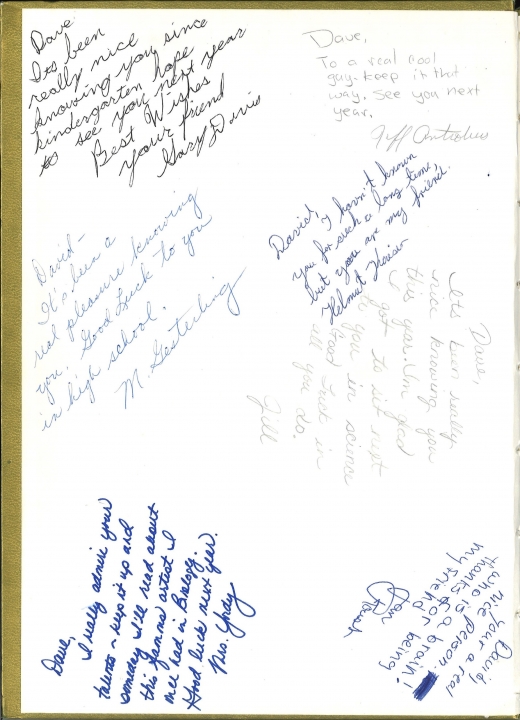 Dave
Its been
really nice
knowing you since
kindergarten hope
to see you next year
Best Wishes
your friend
Gary Davis
Dave,
To a real cool
guy. Keep it that
way. See you next
year.
Jeff
David,
I havn't known
you for such a long time,
but you are my friend.
Helmut
David-
It's been a
real pleasure knowing
you. Good Luck to you
in high school.
M.
Dave,
Its been really
nice knowing you
this year. I'm glad
I got to sit next
to you in science
Good luck in
all you do.
Jill
Dave,
I really admire your
talents - keep it up and
someday I'll read about
this famous artist I
once had in Biology.
Good luck next year.
Mrs. Gray
David,
Your a real
nice person.
who is a brain!
thanks for being
my friend